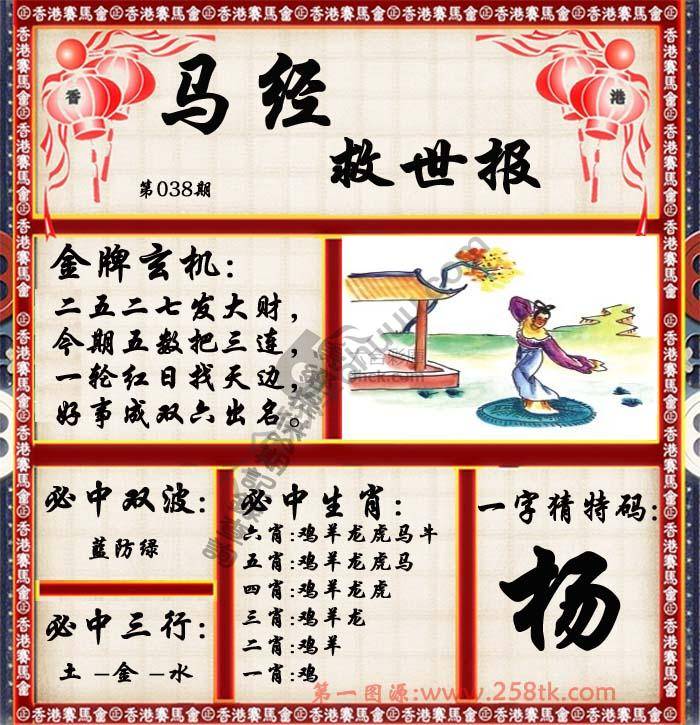 香港賽馬會
香
港
马经
救世报
第038期
金牌玄机:
二五二七发大财,
今期五数把三连,
一轮红日找天边,
好事成双六出名。
必中双波:
藍防绿
必中三行:
土 -金 -水
必中生肖:
六肖:鸡羊龙虎马牛
五肖:鸡羊龙虎马
四肖:鸡羊龙虎
三肖:鸡羊龙
二肖:鸡羊
一肖:鸡
一字猜特码:
杨
第一图源:www.258tk.com